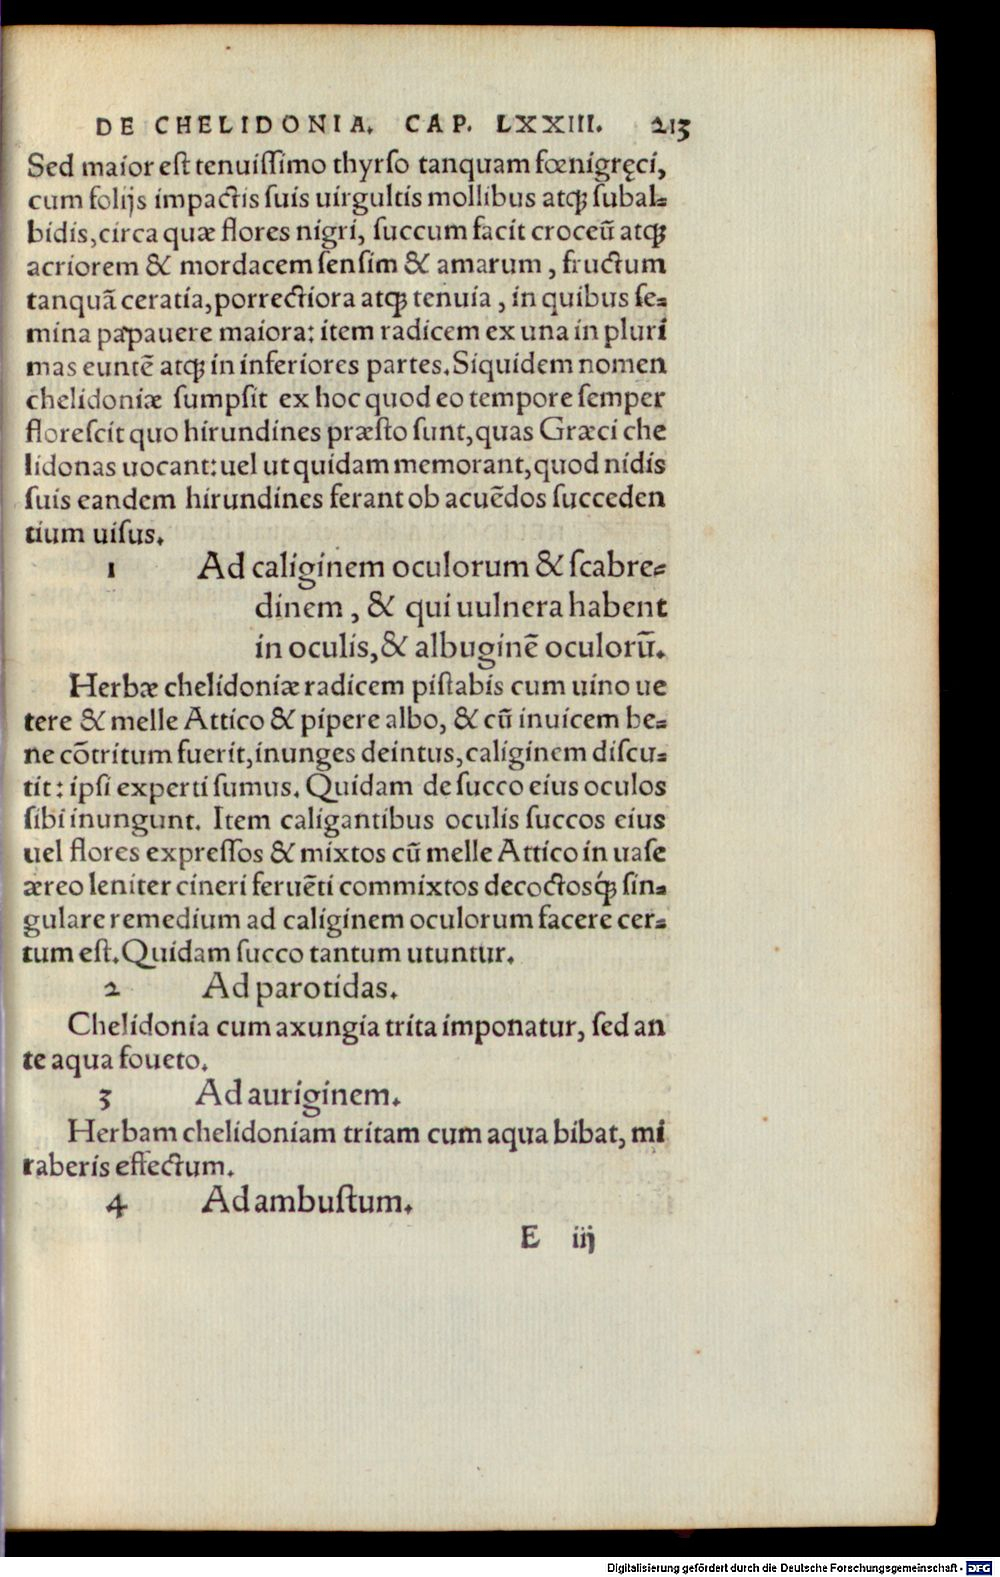 DE CHELIDONIA. CAP. LXXIII. 213
Sed maior eſt tenuiſſimo thyrſo tanquam fœnigręci,
cum folijs impactis ſuis uirgultis mollibus atqꝫ ſubal-
bidis, circa quæ flores nigri, ſuccum facit croceũ atqꝫ
acriorem & mordacem ſenſim & amarum, fructum
tanquã ceratia, porrectiora atqꝫ tenuia, in quibus ſe-
mina papauere maiora: item radicem ex una in pluri
mas euntẽ atqꝫ in inferiores partes. Siquidem nomen
chelidoniæ ſumpſit ex hoc quod eo tempore ſemper
floreſcit quo hirundines præſto ſunt, quas Græci che
lidonas uocant: uel ut quidam memorant, quod nidis
ſuis eandem hirundines ferant ob acuẽdos ſucceden
tium uiſus.
1 Ad caliginem oculorum & ſcabre-
dinem, & qui uulnera habent
in oculis, & albuginẽ oculorũ.
Herbæ chelidoniæ radicem piſtabis cum uino ue
tere & melle Attico & pipere albo, & cũ inuicem be-
ne cõtritum fuerit, inunges deintus, caliginem diſcu-
tit: ipſi experti ſumus. Quidam de ſucco eius oculos
ſibi inungunt. Item caligantibus oculis ſuccos eius
uel flores expreſſos & mixtos cũ melle Attico in uaſe
æreo leniter cineri feruẽti commixtos decoctosq́ꝫ ſin-
gulare remedium ad caliginem oculorum facere cer-
tum eſt. Quidam ſucco tantum utuntur.
2 Ad parotidas.
Chelidonia cum axungia trita imponatur, ſed an
te aqua foueto.
3 Ad auriginem.
Herbam chelidoniam tritam cum aqua bibat, mi
raberis effectum.
4 Ad ambuſtum.
E iij
Digitalisierung gefördert durch die Deutsche Forschungsgemeinschaft - DFG